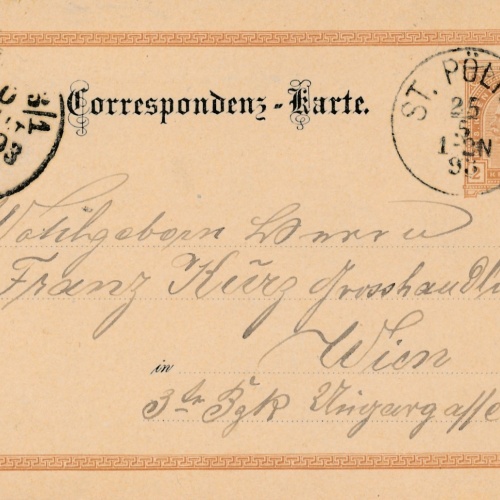 Correspondenz-Karte.
ST. PÖL
25
1-2N
93
3/1
93
2
Wohlgeborn Herrn
Franz Kurz Grosshandl
in Wien
3te Bzk Ungargasse